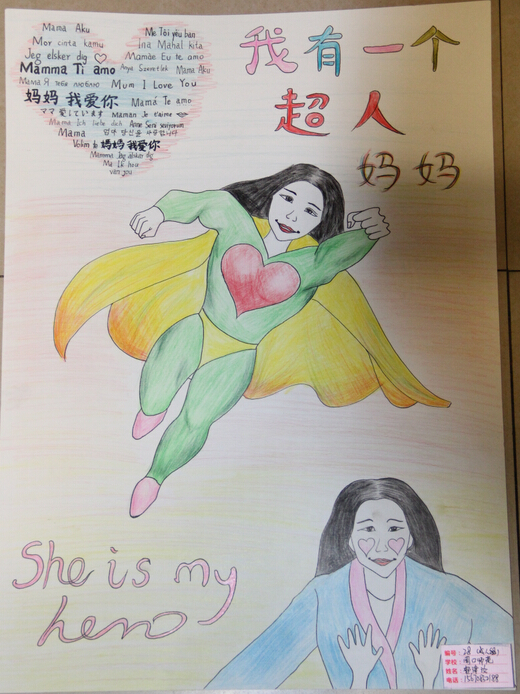 Mama Aku
Me Tôi yêu bạn
Mor cinta kamu
Ina Mahal kita
Jeg elsker dig
Mamãe Eu te amo
Mamma Ti amo
Mama Aku
Mama Я тебя люблю
Mum I Love You
妈妈 我爱你
Mamá Te amo
ママ 愛しています
Maman Je t'aime
Mama Ich liebe dich
Anne Seni seviyorum
Mama
엄마 당신을 사랑합니다
妈妈我爱你
Mamma Jeg elsker dig
我有一个
超人
妈妈
She is my
hero
编号:
学校:
姓名:
电话: